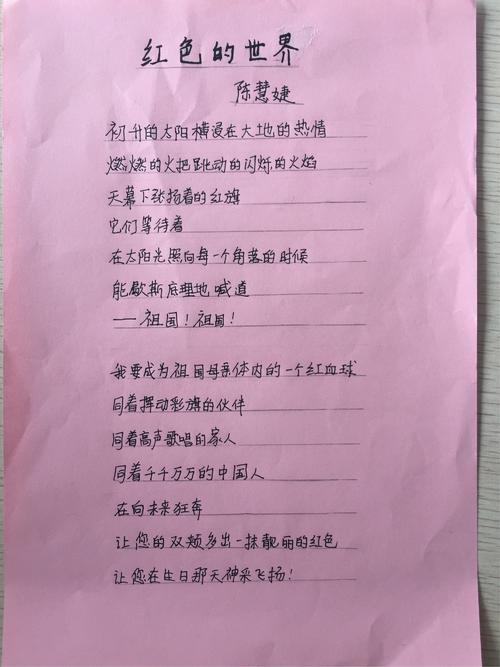 红色的世界
陈慧婕
初升的太阳横浸在大地的热情
燃燃的火把跳动的闪烁的火焰
天幕下张扬着的红旗
它们等待着
在太阳光照向每一个角落的时候
能歇斯底理地喊道
——祖国！祖国！
我要成为祖国母亲体内的一个红血球
同着挥动彩旗的伙伴
同着高声歌唱的家人
同着千千万万的中国人
在向未来狂奔
让您的双颊多出一抹靓丽的红色
让您在生日那天神采飞扬！